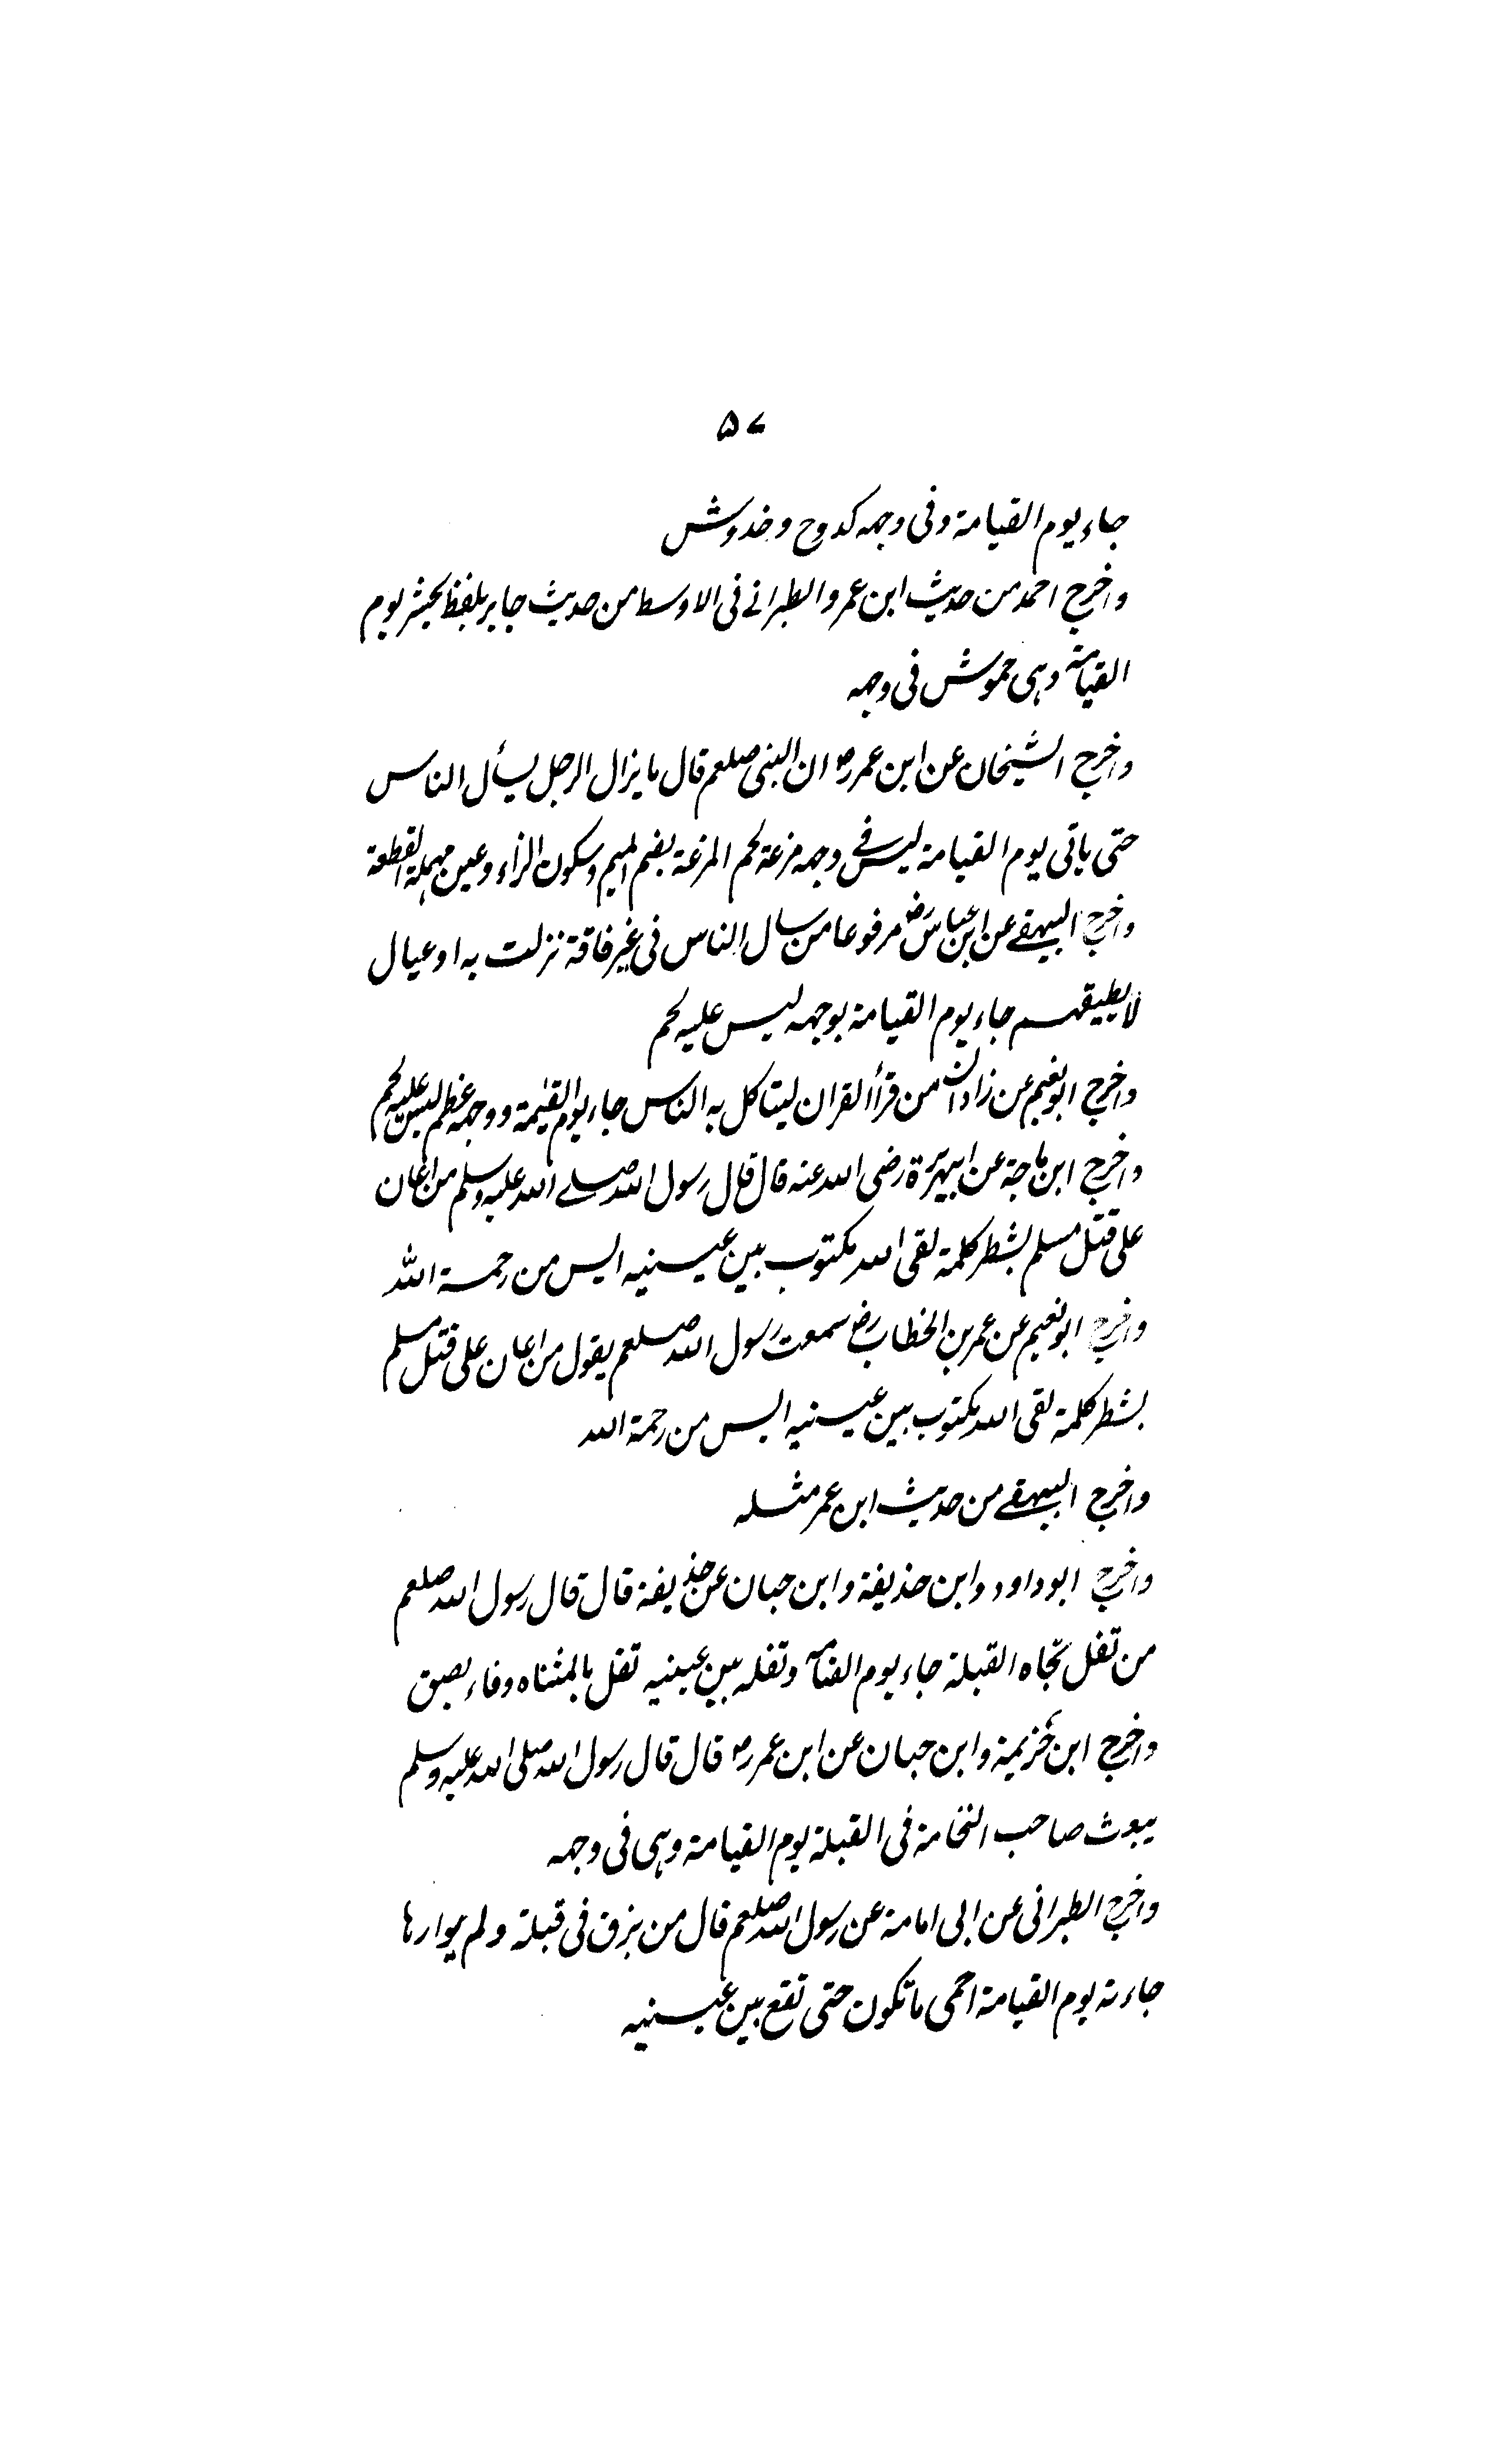 ۵۷
جاء يوم القيامة وفى وجهه كدوح وخدوش
واخرج احمد من حديث ابن عمر والطبرانے فى الاوسط من حديث جابر بلفظ يحشر يوم
القيامة وہى خموش فى وجهه
واخرج الشيخان عن ابن عمر رض ان النبى صلعم قال ما يزال الرجل يسأل الناس
حتى ياتى يوم القيامة ليس فے وجهه مزعة لحم المزعة بضم الميم وسكون الزاء وعين مهملة القطعة
واخرج البيهقے عن ابن عباس رض مرفوعا من سال الناس فى غير فاقة نزلت به او عيال
لا يطيقهم جاء يوم القيامة بوجهه ليس عليه لحم
واخرج ابونعيم عن زاذان من قرأ القران ليتاكل به الناس جاء يوم القيٰمة ووجهه عظم ليس عليه لحم
واخرج ابن ماجة عن ابيهريرة رضى الله عنه قال قال رسول الله صلے الله عليه وسلم من اعان
على قتل مسلم بشطر كلمة لقى الله مكتوب بين عينيه ايس من رحمة الله
واخرج ابونعيم عن عمر بن الخطاب رض سمعت رسول الله صلعم يقول من اعان على قتل مسلم
بشطر كلمة لقى الله مكتوب بين عينيه ايس من رحمة الله
واخرج البيهقے من حديث ابن عمر مثله
واخرج ابوداود وابن حذيفة وابن حبان عن حذيفة قال قال رسول الله صلعم
من تفل تجاه القبلة جاء يوم القيامة وتفله بين عينيه تفل بالمثناه وفاء بصق
واخرج ابن خزيمة وابن حبان عن ابن عمر رض قال قال رسول الله صلى الله عليه وسلم
يبعث صاحب النخامة فى القبلة يوم القيامة وہى فى وجهه
واخرج الطبرانى عن ابى امامة عن رسول الله صلعم قال من بزق فى قبلة ولم يوارها
جاءته يوم القيامة احمى ما تكون حتى تقع بين عينيه